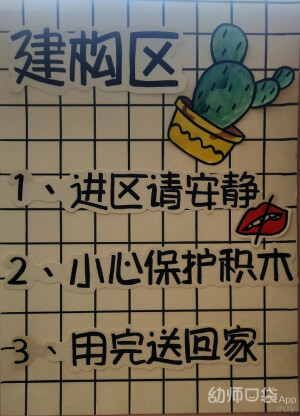 建构区
1、进区请安静
2、小心保护积木
3、用完送回家
幼师口袋 App